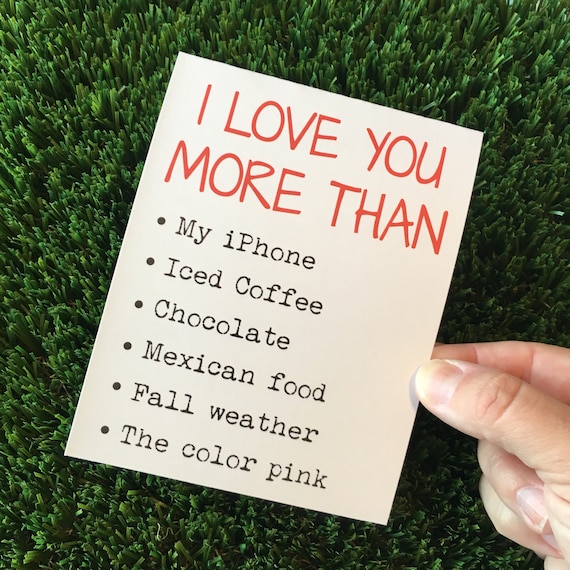 I LOVE YOU
MORE THAN
• My iPhone
• Iced Coffee
• Chocolate
• Mexican food
• Fall weather
• The color pink